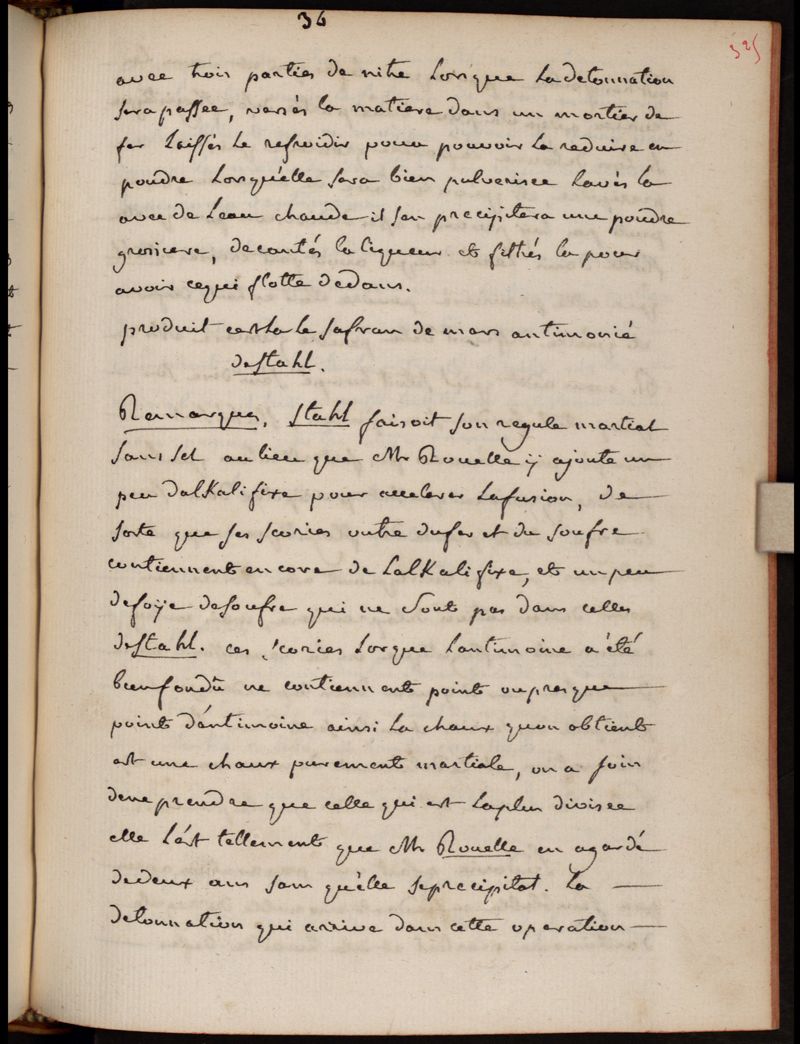 36
325
avec trois parties de nitre Lorsque La detonnation
sera passée, versés la matiere dans un mortier de
fer Laissés Le refroidir pour pouvoir La reduire en
poudre Lorsqu'elle sera bien pulverisee Lavés la
avec de Leau chaude il sen precipitera une poudre
grossiere, decantés la liqueur et filtrés la pour
avoir cequi flotte dedans.
produit cest La le safran de mars antimonié
de Stahl.
Remarques. Stahl faisoit son regule martial
sans sel au lieu que Mr Rouelle ÿ ajoute un
peu dalKali fixe pour accelerer Lafusion, de
sorte que ses scories outre dufer et du soufre
contiennent encore de LalKali fixe, et un peu
defoÿe desoufre qui ne sont pas dans celles
de Stahl. ces scories Lorsque Lantimoine a été
bienfondu ne contiennent point ou presque
point d'antimoine ainsi La chaux quon obtient
est une chaux purement martiale, on a soin
dene prendre que celle qui est Laplus divisee
elle L'est tellement que Mr Rouelle en agardé
dedeux ans sans qu'elle seprecipitat. La
detonnation qui arrive dans cette operation